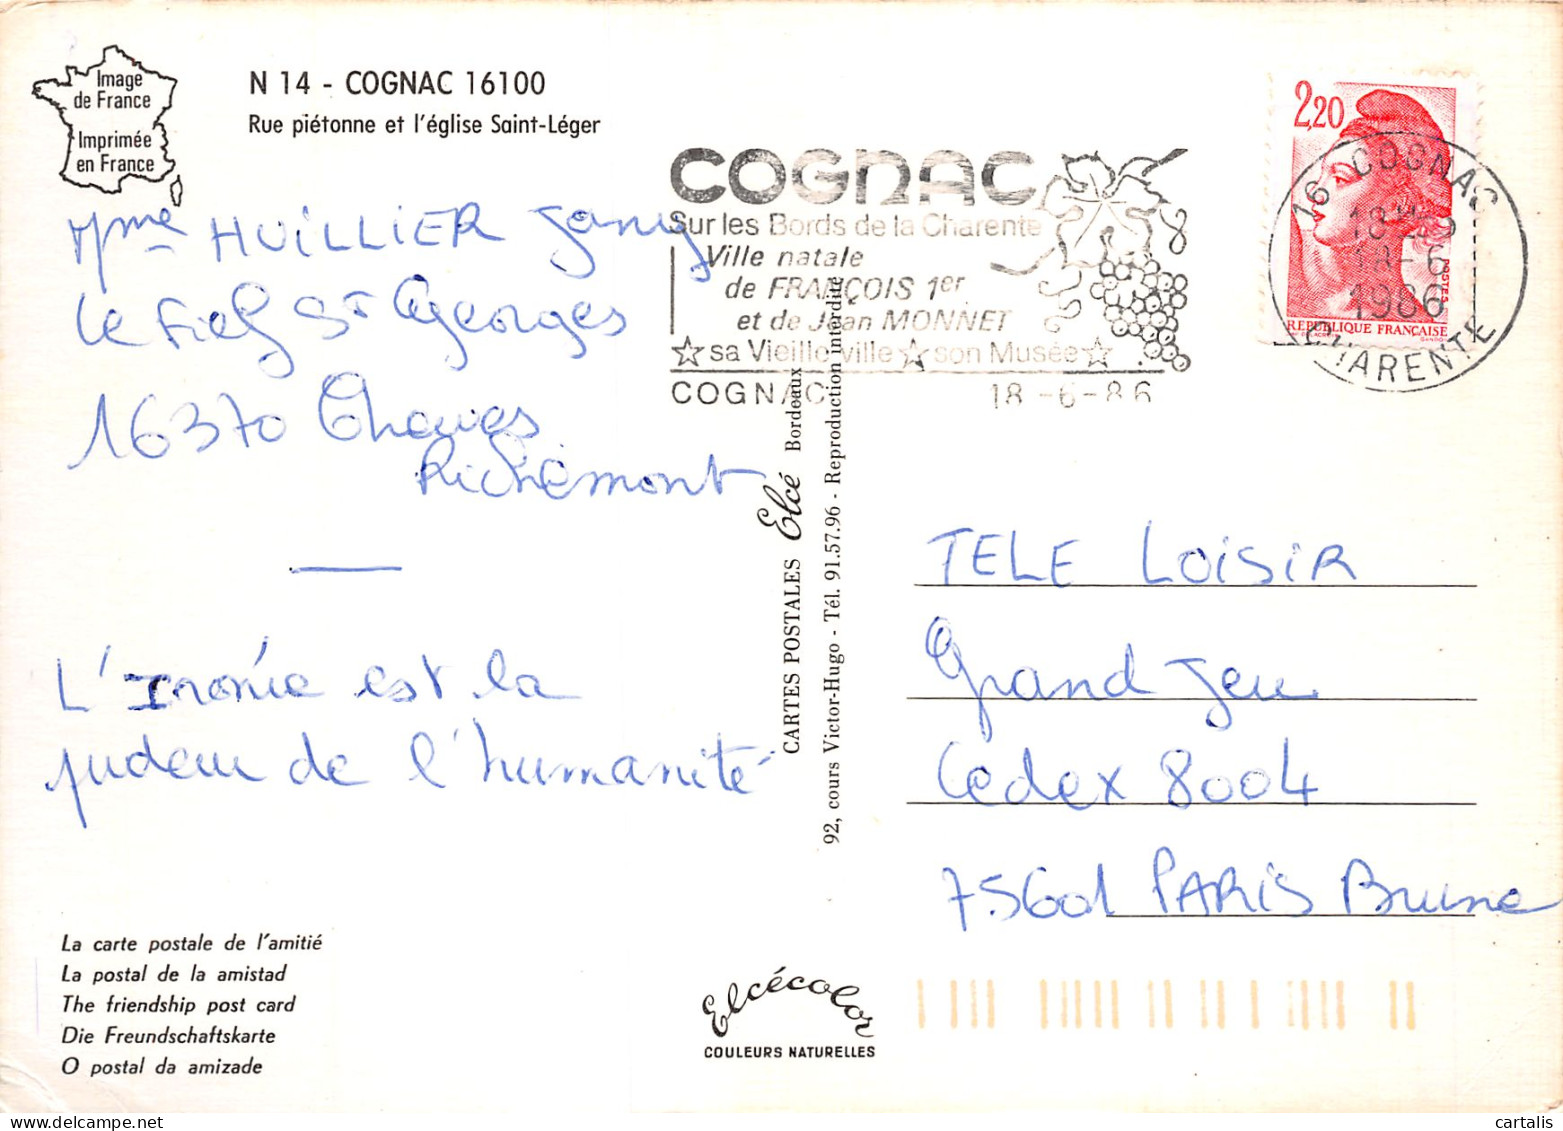 Image
de France
Imprimée
en France
N 14 - COGNAC 16100
Rue piétonne et l'église Saint-Léger
Mme HUILLIER Jany
Le Fief St Georges
16370 Cherves
Richemont
L'Ironie est la
pudeur de l'humanité
La carte postale de l'amitié
La postal de la amistad
The friendship post card
Die Freundschaftskarte
O postal da amizade
COGNAC
Sur les Bords de la Charente
Ville natale
de FRANÇOIS 1er
et de Jean MONNET
☆ sa Vieille ville ☆ son Musée ☆
COGNAC 18-6-86
CARTES POSTALES Elcé Bordeaux
92, cours Victor-Hugo - Tél. 91.57.96 - Reproduction interdite
Elcécolor
COULEURS NATURELLES
2,20
POSTES
REPUBLIQUE FRANÇAISE
GANDON
16 COGNAC
18-6
1986
CHARENTE
TELE LOISIR
Grand Jeu
Cedex 8004
75601 PARIS Brune
cartalis